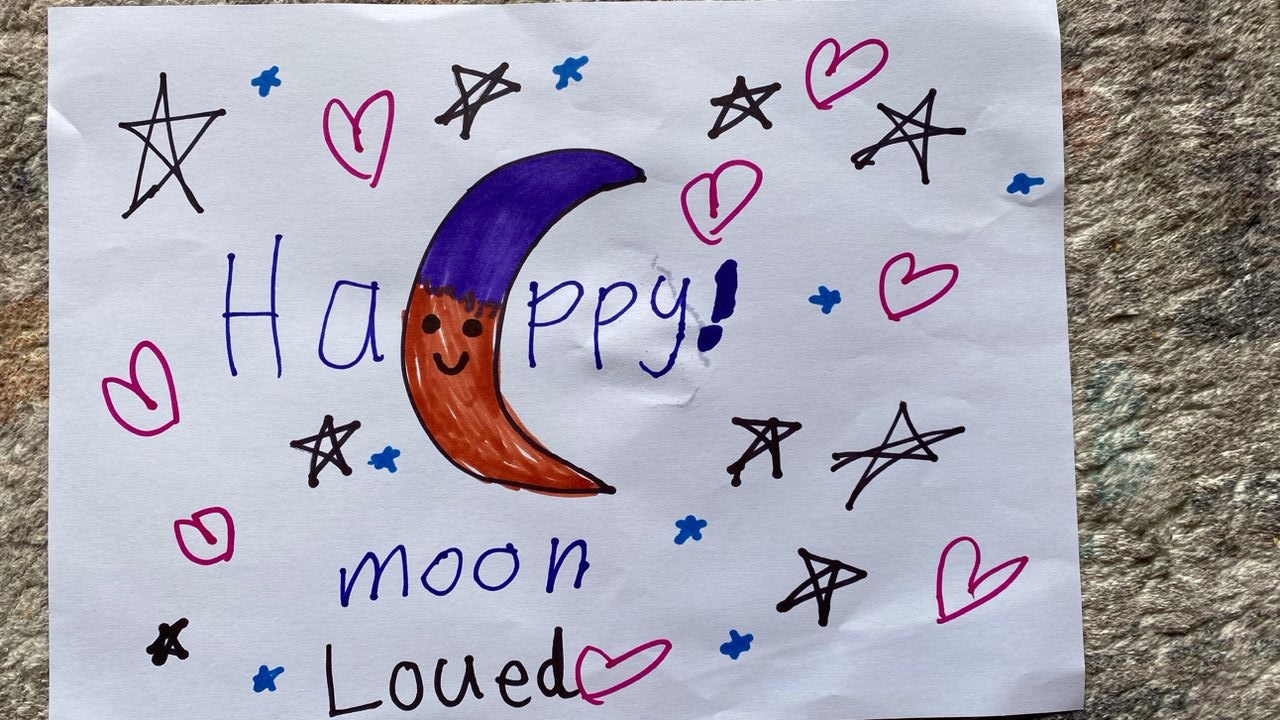 Happy!
moon
Loued